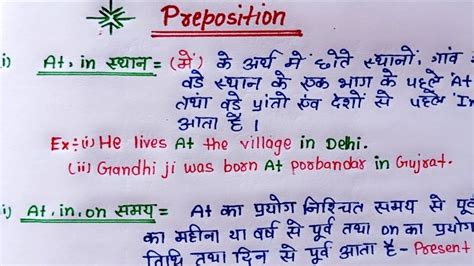 Preposition
i) At, in स्थान = (में) के अर्थ में छोटे स्थानों, गांव
बडे स्थान के एक भाग के पहले At
तथा बडे प्रांतो एंव देशों से पहले In
आता है ।
Ex÷(i) He lives At the village in Delhi.
(ii) Gandhi ji was born At porbandar in Gujrat.
i) At, in, on समय = At का प्रयोग निश्चित समय से पूर्व
का महीना था बर्ष से पूर्व तथा on का प्रयोग
तिथि तथा दिन से पूर्व आता है - Present